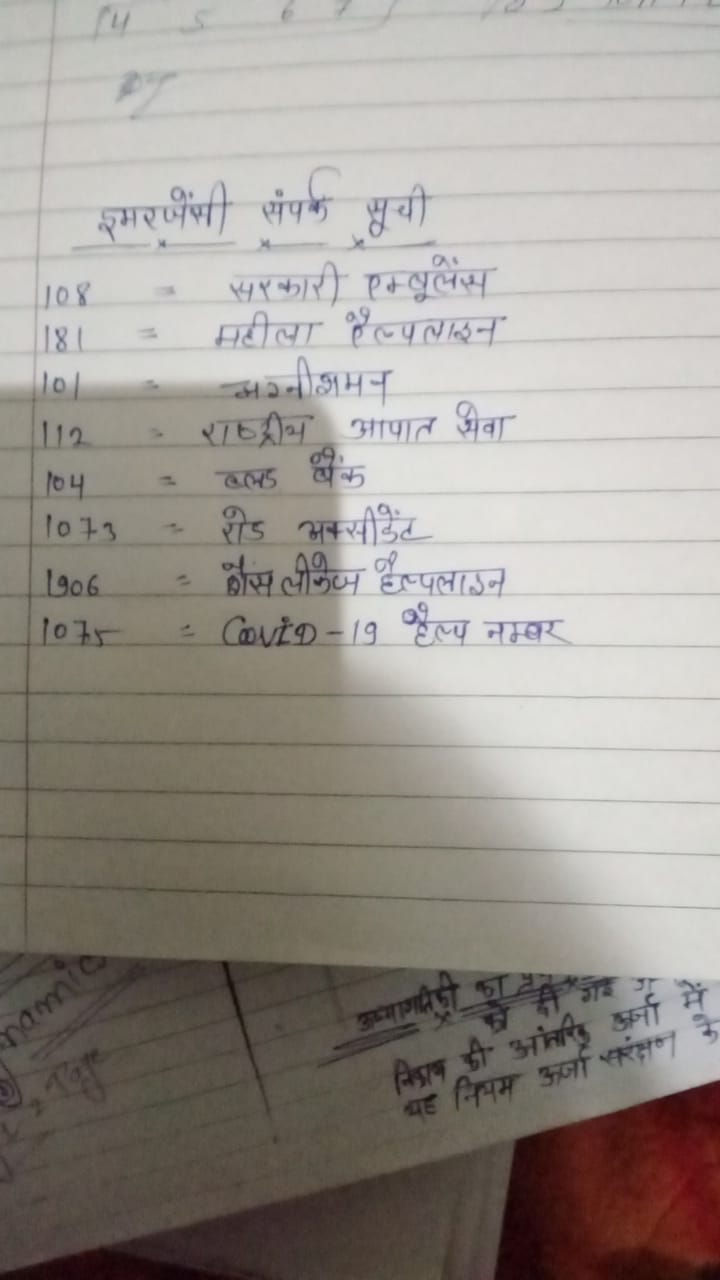 14 5 6 7
इमरजेंसी संपर्क सूची
108 = सरकारी एम्बूलेंस
181 = महीला हैल्पलाइन
101 = अग्नीशमन
112 = राष्ट्रीय आपात सेवा
104 = ब्लड बैंक
1073 = रोड अक्सीडेंट
1906 = गैस लीकेज हैल्पलाइन
1075 = COVID-19 हैल्प नम्बर
namic
का
को दी गई
निकाय की आंतरिक ऊर्जा में
यह नियम ऊर्जा संरक्षण के